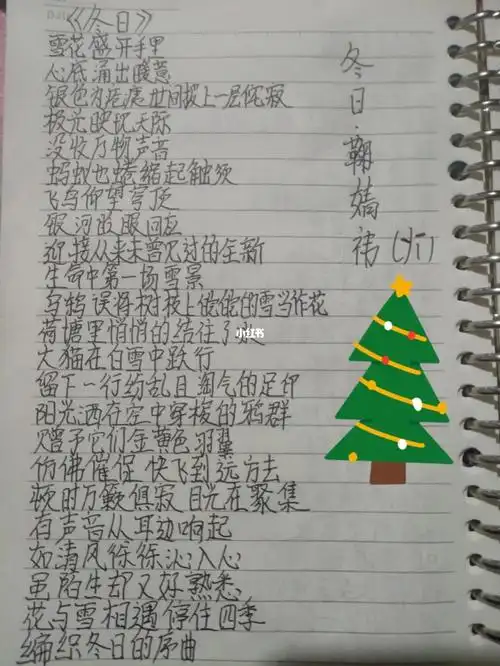 《冬日》
雪花盛开手里
心底涌出暖意
银色为苍凉世间披上一层侘寂
极光映现天际
没收万物声音
蚂蚁也蜷缩起触须
飞鸟仰望穹顶
银河的眼回应
迎接从来未曾见过的全新
生命中第一场雪景
乌鸦误将树枝上皑皑的雪当作花
荷塘里悄悄的结住了冰
大猫在白雪中跃行
留下一行纷乱且淘气的足印
阳光洒在空中穿梭的鸦群
赠予它们金黄色羽翼
仿佛催促快飞到远方去
顿时万籁俱寂目光在聚集
有声音从耳边响起
如清风徐徐沁入心
虽陌生却又好熟悉
花与雪相遇停住四季
编织冬日的序曲
冬日·鞠婧祎(yī)
小红书